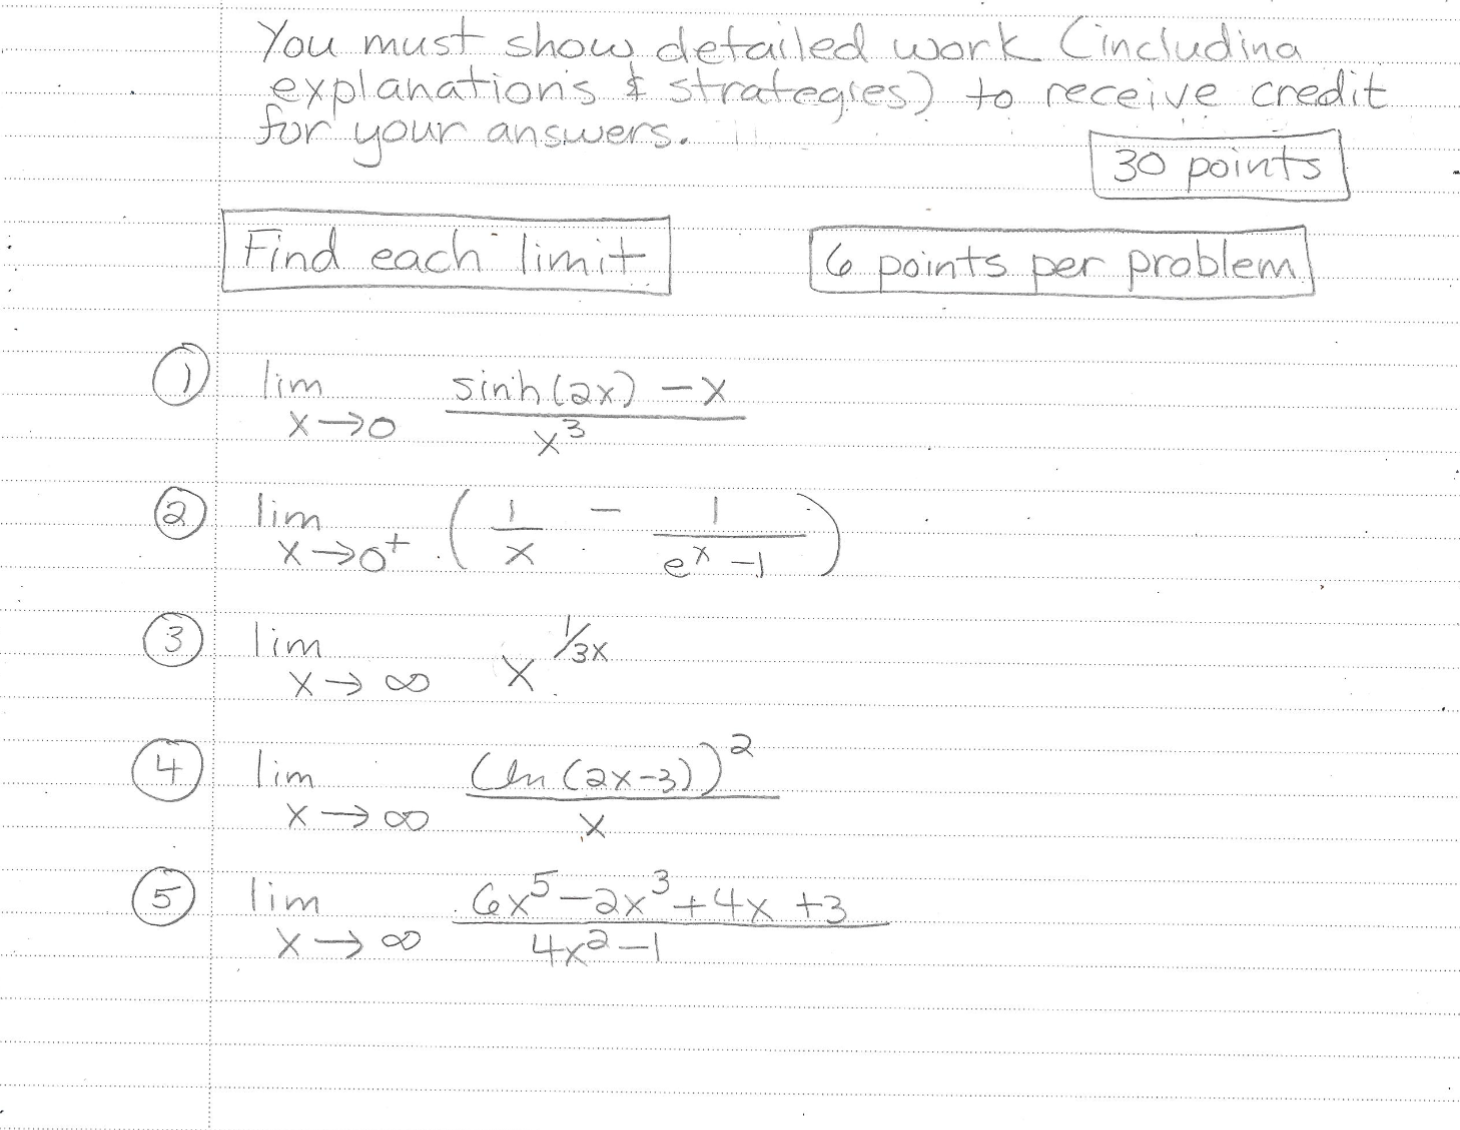 You must show detailed work (including
explanations & strategies) to receive credit
for your answers.
30 points
Find each limit
6 points per problem
① lim x→0 (sinh(2x) - x) / x³
② lim x→0⁺ (1/x - 1/(eˣ - 1))
③ lim x→∞ x^(1/3x)
④ lim x→∞ (ln(2x-3))² / x
⑤ lim x→∞ (6x⁵ - 2x³ + 4x + 3) / (4x² - 1)